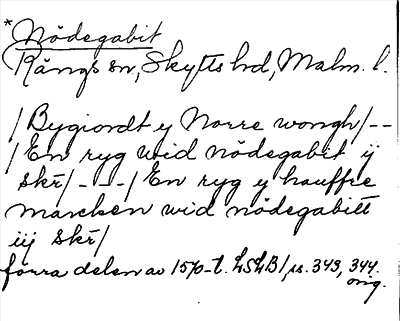 *Nödegabit
Rängs sn, Skytts hd, Malm. l.
/Bygiordt y Norre wongh/--
/En ryg wid nödegabit ÿ
skr̄/---/En ryg y hauffre
marcken wid nödegabitt
iij skr̄/
förra delen av 1570-t. LSLB1, s. 343, 344.
orig.